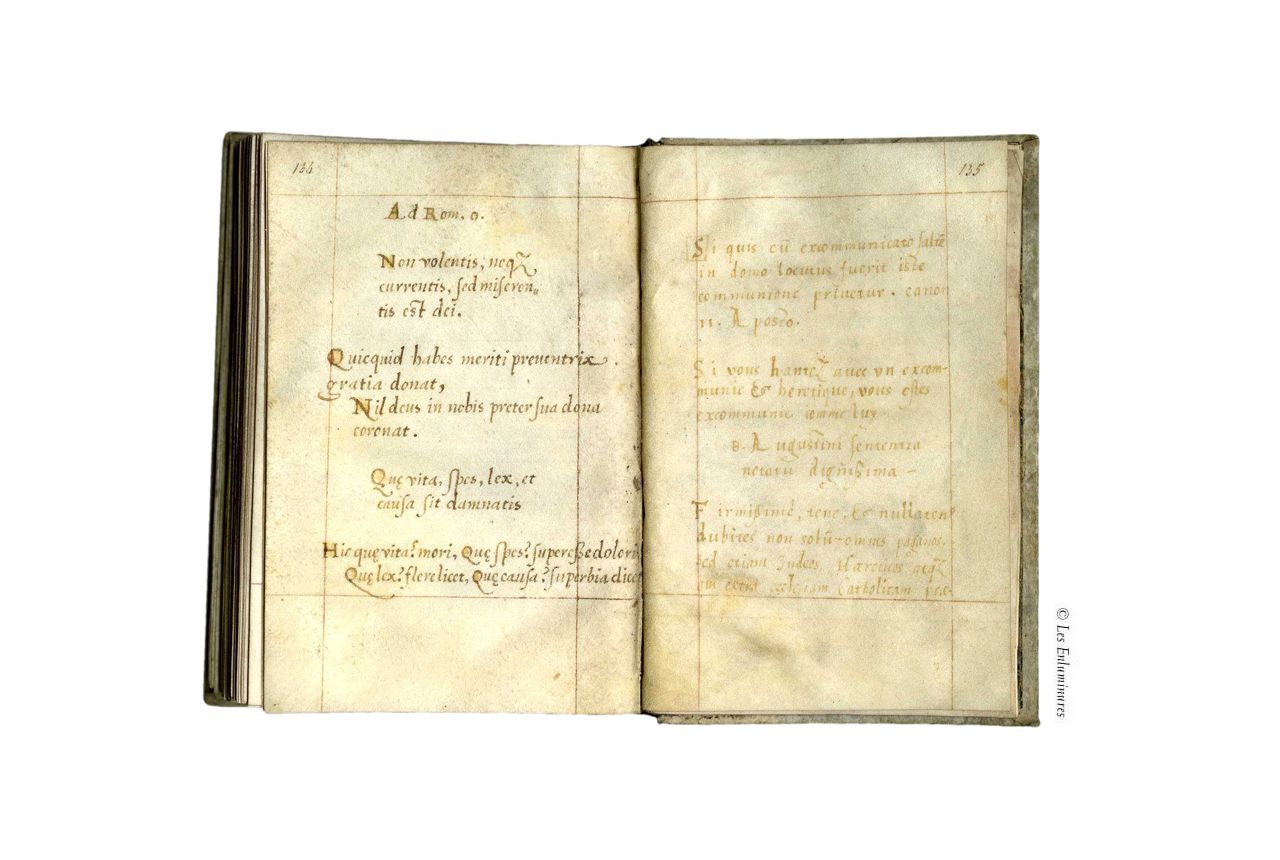 134
Ad Rom. 9.
Non volentis, neqꝫ
currentis, sed miseren„
tis est dei.
Quicquid habes meriti preventrix
gratia donat,
Nil deus in nobis preter sua dona
coronat.
Quę vita, spes, lex, et
causa sit damnatis
Hic quę vita? mori, Quę spes? superesse dolori
Quę lex? flere licet, Quę causa? superbia dicet
135
Si quis cū excommunicato saltē
in domo locutus fuerit iste
communione privetur. canon
11. Aposto.
Si vous hantez avec vn excom-
munie & heretique, vous estes
excommunie comme luy.
B. Augustini sententia
notatu dignissima –
Firmissimè, tene, & nullaten9
dubites non solū omnes paganos.
sed etiam Judeos, Hæreticos atqꝫ
Ecclesiam Catholicam
© Les Enluminures